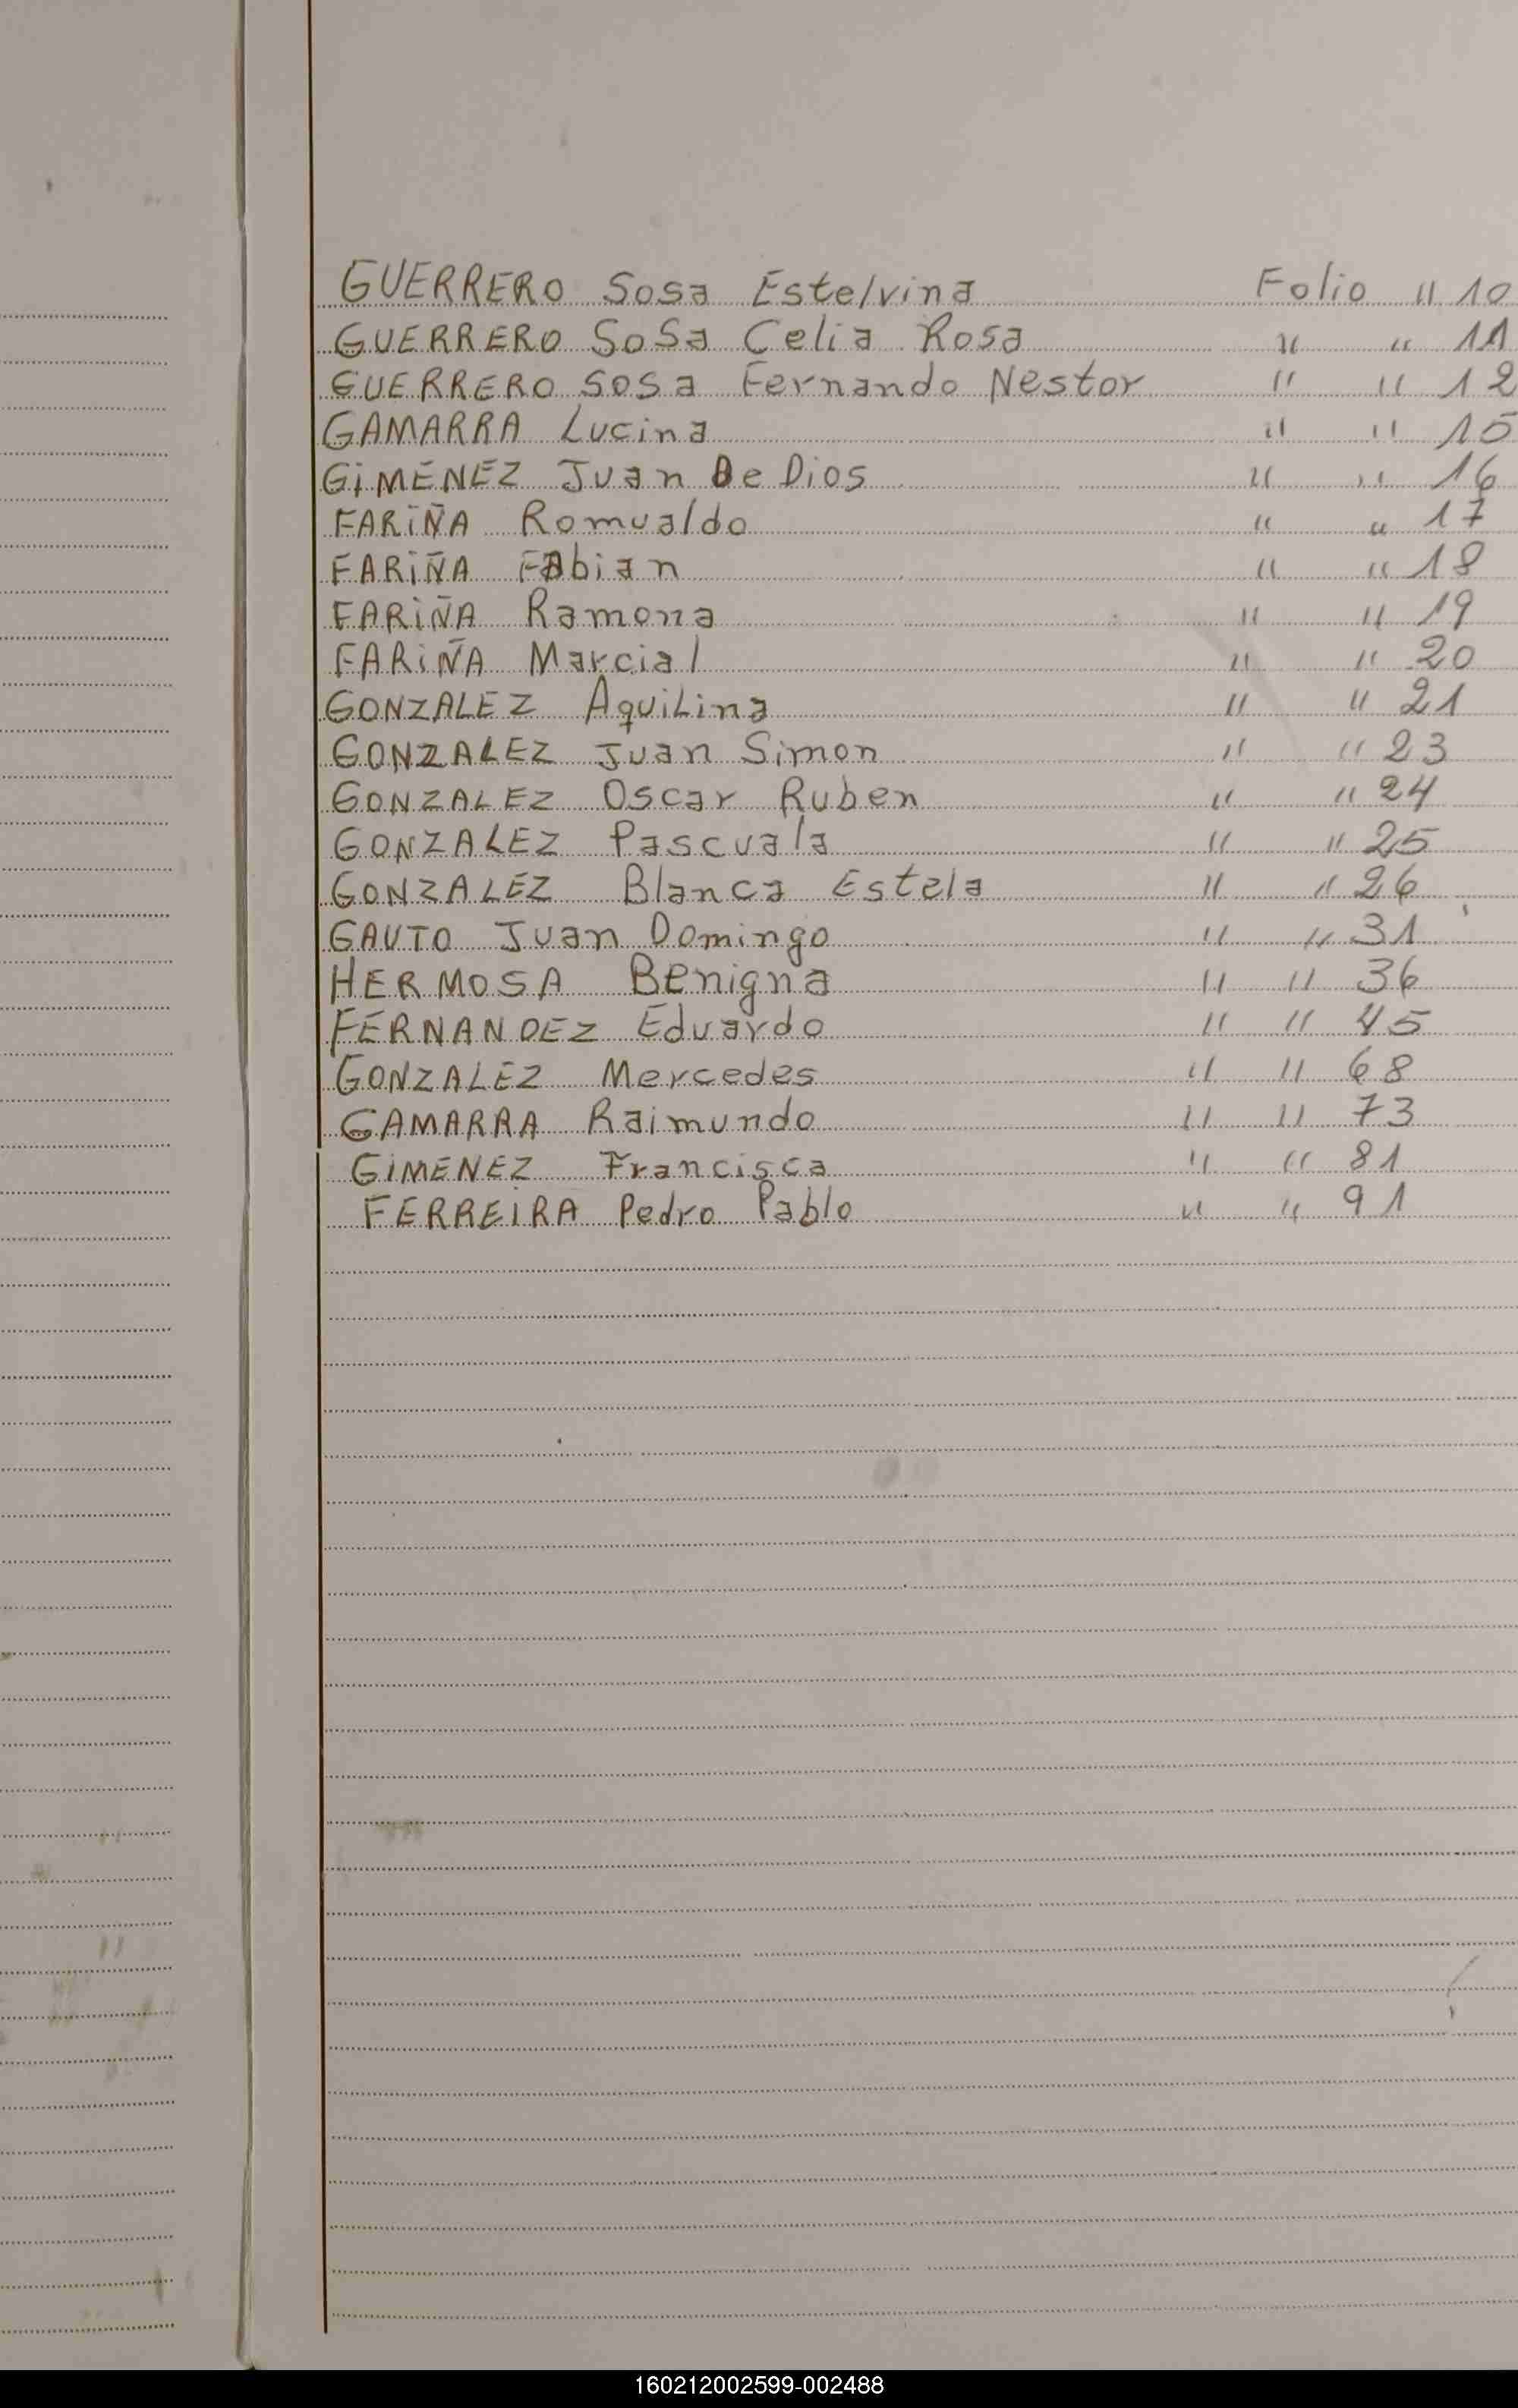 GUERRERO Sosa Estelvina Folio " 10
GUERRERO SoSa Celia Rosa " " 11
GUERRERO SOSa Fernando Nestor " " 12
GAMARRA Lucina " " 15
GiMENEZ Juan De Dios " " 16
FARiÑA Romualdo " " 17
FARiÑA FAbian " " 18
FARiÑA Ramona " " 19
FARiÑA Marcial " " 20
GONZALEZ AquiLina " " 21
GONZALEZ Juan Simon " " 23
GONZALEZ Oscar Ruben " " 24
GONZALEZ Pascuala " " 25
GONZALEZ Blanca Estela " " 26
GAUTO Juan Domingo " " 31
HERMOSA BEnigna " " 36
FERNANDEZ Eduardo " " 45
GONZALEZ Mercedes " " 68
GAMARRA Raimundo " " 73
GIMENEZ Francisca " " 81
FERREIRA Pedro Pablo " " 91
160212002599-002488